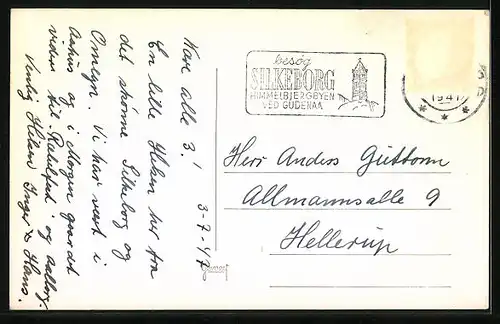 3-7-47
Kære alle 3!
En lille Hilsen her fra
det skønne Silkeborg og
Omegn. Vi har været i
Aarhus og i Morgen gaar det
videre til og Aalborg.
Venlig Hilsen Inger & Hans.
besøg
SILKEBORG
HIMMELBJERGBYEN
VED GUDENAA
19.41
Herr Anders Guttorm
Allmannsalle 9
Hellerup